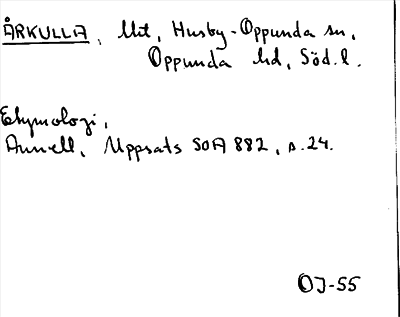 ÅRKULLA, Mt, Husby-Oppunda sn,
Oppunda hd, Söd.l.
Etymologi,
Annell, Uppsats SOA 882, s.24.
OJ-55